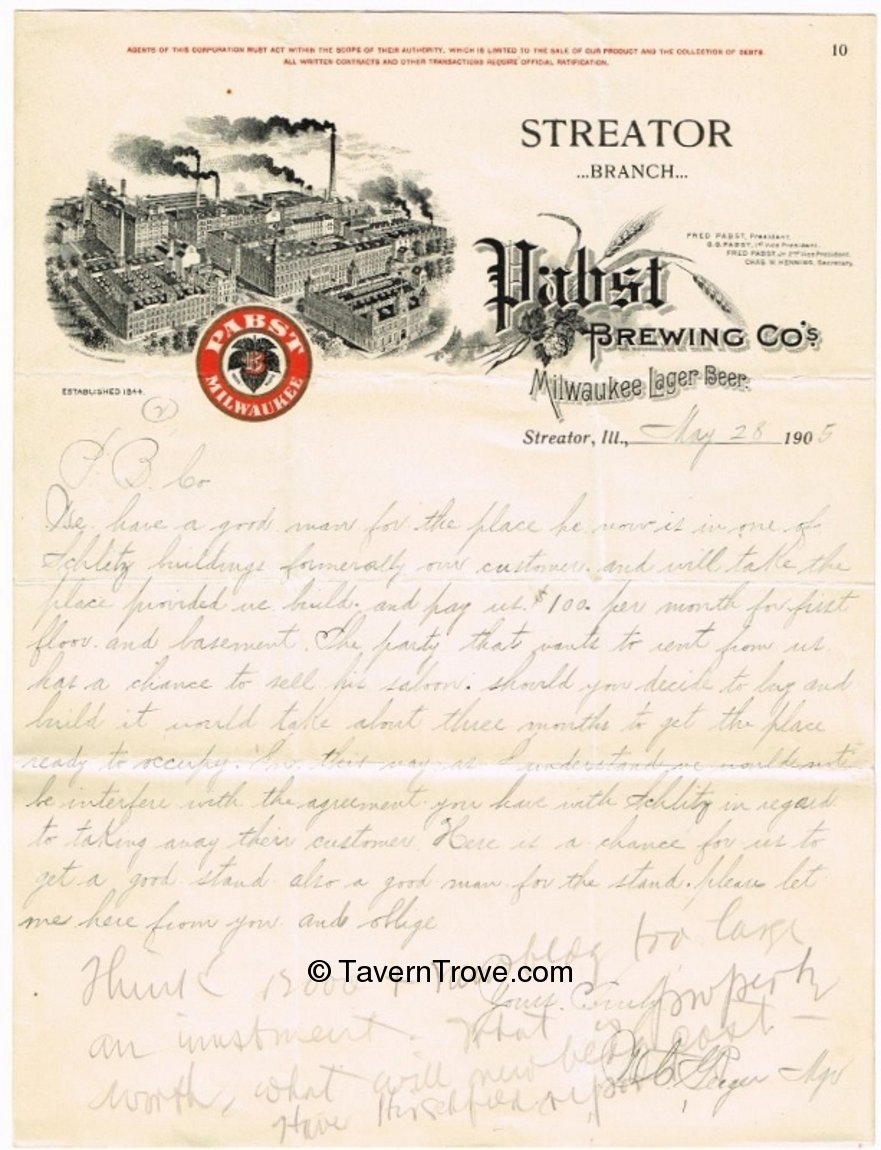 AGENTS OF THIS CORPORATION MUST ACT WITHIN THE SCOPE OF THEIR AUTHORITY, WHICH IS LIMITED TO THE SALE OF OUR PRODUCT AND THE COLLECTION OF DEBTS.
ALL WRITTEN CONTRACTS AND OTHER TRANSACTIONS REQUIRE OFFICIAL RATIFICATION.
10
STREATOR
...BRANCH...
FRED PABST, President.
G.G. PABST, 1st Vice President.
FRED PABST, Jr. 2nd Vice President.
CHAS. W. HENNING, Secretary.
Pabst
BREWING CO'S
Milwaukee Lager Beer.
PABST
B
MILWAUKEE
ESTABLISHED 1844.
(2)
Streator, Ill., May 28 1905
P. B. Co
We have a good man for the place he now is in one of
Schlitz buildings formerally our customer. and will take the
place provided we build. and pay us. $100. per month for first
floor. and basement. The party that wants to rent from us.
has a chance to sell his saloon. should you decide to buy and
build it would take about three months to get the place
ready to occupy. this way as I understand we would not
be interfere with the agreement you have with Schlitz in regard
to taking away their customer. Here is a chance for us to
get a good stand also a good man for the stand. please let
me here from you and oblige
Yours Truly
Geiger Mgr
Think too large
an investment. What is property
worth, what will new cost
Have
© TavernTrove.com